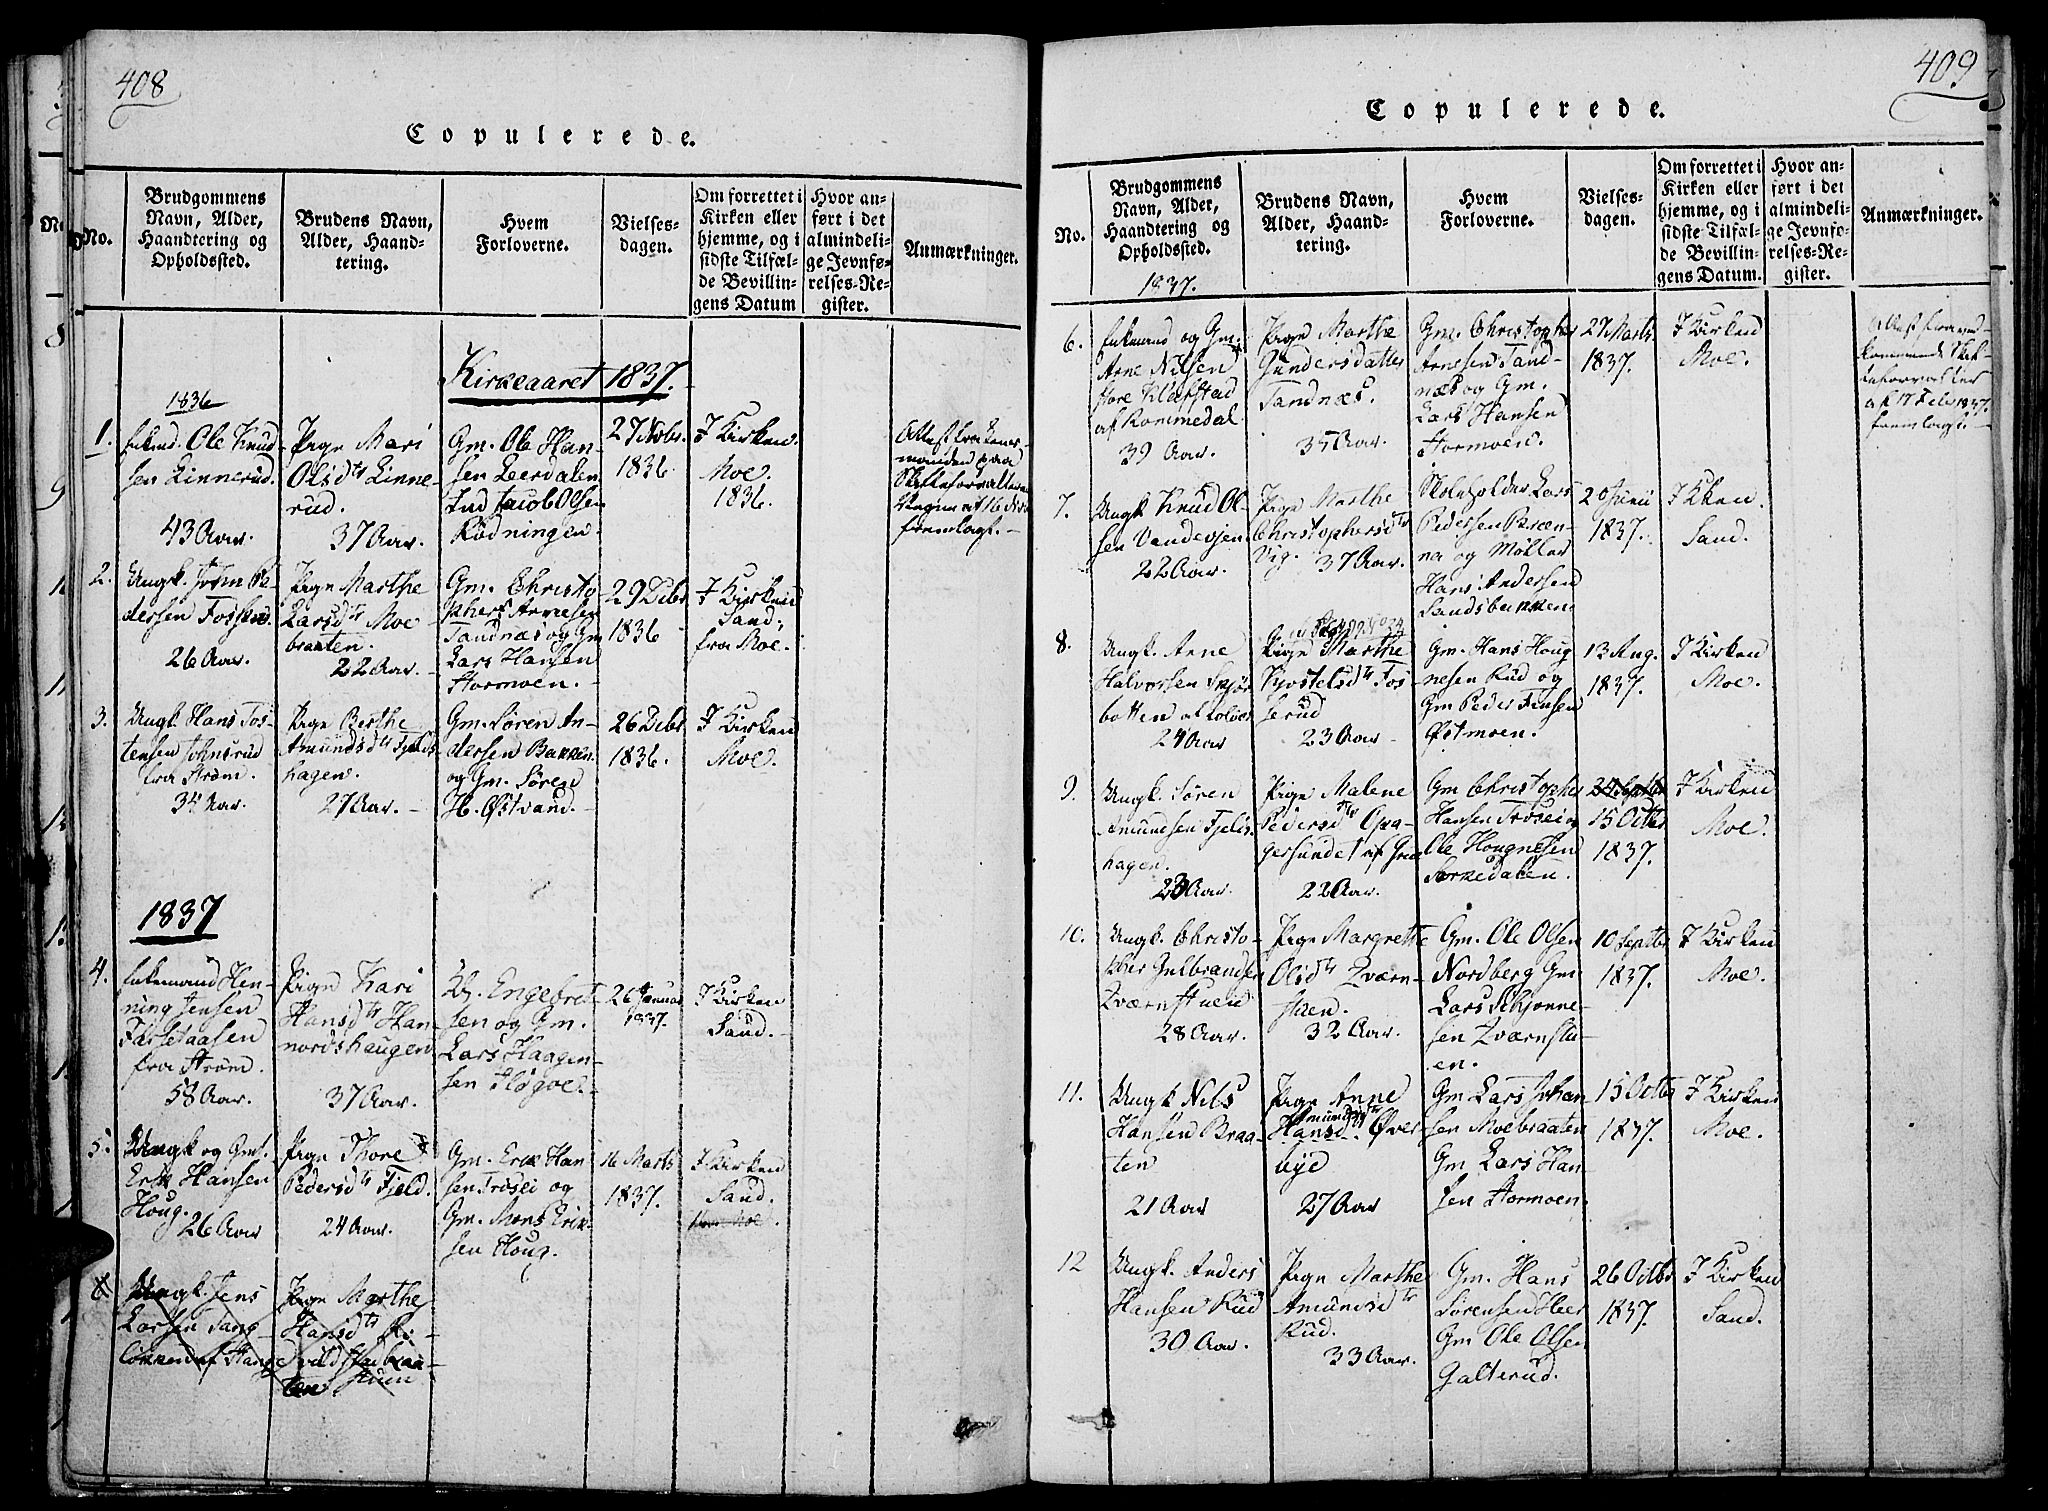 408
Copulerede.
No.
Brudgommens
Navn, Alder,
Haandtering og
Opholdssted.
Brudens Navn,
Alder, Haand-
tering.
Hvem
Forloverne.
Vielses-
dagen.
Om forrettet i
Kirken eller
hjemme, og i
sidste Tilfæl-
de Bevillin-
gens Datum
Hvor an-
ført i det
almindeli-
ge Jevnfø-
relses-Re-
gister.
Anmærkninger.
Kirkeaaret 1837.
1836
1.
Enkmd. Ole Knud-
sen Linnerud.
43 Aar.
Pige Mari
Olsdtr Linne-
rud.
37 Aar.
Gm. Ole Han-
sen Leerdalen
Ind Jacob Olsen
Rødningen
27 Novbr.
1836
I Kirken
Moe.
1836.
Attest fra
manden paa
Skifteforvalteren
af 16 Nov
fremlagt.
2.
Ungk. John Pe-
dersen Fossum
26 Aar.
Pige Marthe
Larsdtr Moe-
braaten.
22 Aar.
Gm. Christo-
pher Arnesen
Sandnæs og Gm
Lars Hansen
Stormoen.
29 Debr
1836
I Kirken
Sand,
fra Moe.
3.
Ungk. Hans Tos-
tensen Johnsrud
fra Strøm.
34 Aar.
Pige Berthe
Amundsdtr Fjelds-
hagen.
27 Aar.
Gm. Søren An-
dersen Bakken
og Gm. Søren
H. Østvand.
26 Debr
1836.
I Kirken
Moe.
1837
4.
Enkemand Hen-
ning Jensen
Farsetaasen
fra Strøm.
58 Aar.
Pige Kari
Hansdtr Han-
nordshaugen
37 Aar.
Engebret-
sen og Gm.
Lars Haagen-
sen Fløgoe.
26 Januar
1837.
I Kirken
Sand.
5.
Ungk og Gm.
Erik Hansen
Houg.
26 Aar
Pige Thore
Pedersdtr Fjeld.
24 Aar.
Gm. Erik Han
sen Trøsei og
Gm. Mons Erik-
sen Houg.
16 Marts
1837.
I Kirken
Sand.
Moe.
6
Ungk. Jens
Larsen Sang-
løkken af Stange
Pige Marthe
Hansdtr
409
Copulerede.
No.
Brudgommens
Navn, Alder,
Haandtering og
Opholdssted.
1837.
Brudens Navn,
Alder, Haand-
tering.
Hvem
Forloverne.
Vielses-
dagen.
Om forrettet i
Kirken eller
hjemme, og i
sidste Tilfæl-
de Bevillin-
gens Datum.
Hvor an-
ført i det
almindeli-
ge Jevnfø-
relses-Re-
gister.
Anmærkninger.
6.
Enkemand og Gm.
Arne Nilsen
store Kleppstad
af Rommedal.
39 Aar.
Pige Marthe
Gundersdatter
Sandnæs.
35 Aar.
Gm. Christopher
Arnesen Sand-
næs og Gm.
Lars Hansen
Stormoen.
27 Marts
1837.
I Kirken
Moe.
Attest fra ved-
kommende Skif-
teforvalter
af 17 Feb 1837.
fremlagt.
7.
Ungk Knud Ol-
sen Vandevjen
22 Aar.
Pige Marthe
Christophersdtr
Vig. 37 Aar.
Skoleholder Lars
Pedersen
og Møller
Hans Andersen
Sandsbakken
2 Juni
1837.
I Kken
Sand.
8.
Ungk. Arne
Halvorsen Skjør
botten af Soløer
24 Aar
Pige Marthe
Kjostelsdtr Fos-
serud
23 Aar
Gm. Hans Houg
nesen Rud og
Gm Peder Finsen
Østmoen.
13 Aug.
1837.
I Kirken
Moe.
9.
Ungk. Søren
Amundsen Fjelds-
hagen.
23 Aar.
Pige Malene
Pedersdtr Opa-
gersundet af Grue
22 Aar.
Gm Christopher
Hansen Trøsei og
Ole Hougnesen
Storkedalen.
24 Septbr
15 Octbr
1837.
I Kirken
Moe.
10.
Ungk. Christo-
pher Gulbrandsen
Zværnstuen
28 Aar.
Pige Margrethe
Olsdtr Zværn-
stuen.
32 Aar.
Gm. Ole Olsen
Nordberg Gm
Lars Schjønne-
sen Zværnstu-
en.
10 Septbr
1837.
I Kirken
Moe.
11.
Ungk Nils
Hansen Braa-
ten
21 Aar
Pige Anne
Amundsdtr
Hansd. Øver-
bye
27 Aar
Gm Lars Johan-
sen Moebraaten
Gm Lars Han-
sen Stormoen
15 Octbr
1837.
I Kirken
Moe.
12
Ungk. Anders
Hansen Rud
30 Aar.
Pige Marthe
Amundsdtr
Rud.
33 Aar.
Gm. Hans
Sørensen Heer
Gm Ole Olsen
Galterud.
26 Octbr
1837.
I Kirken
Sand.